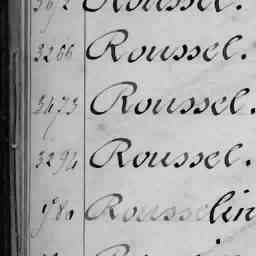 Roussel.
3266 Roussel.
3473 Roussel.
3294 Roussel.
Rousselin